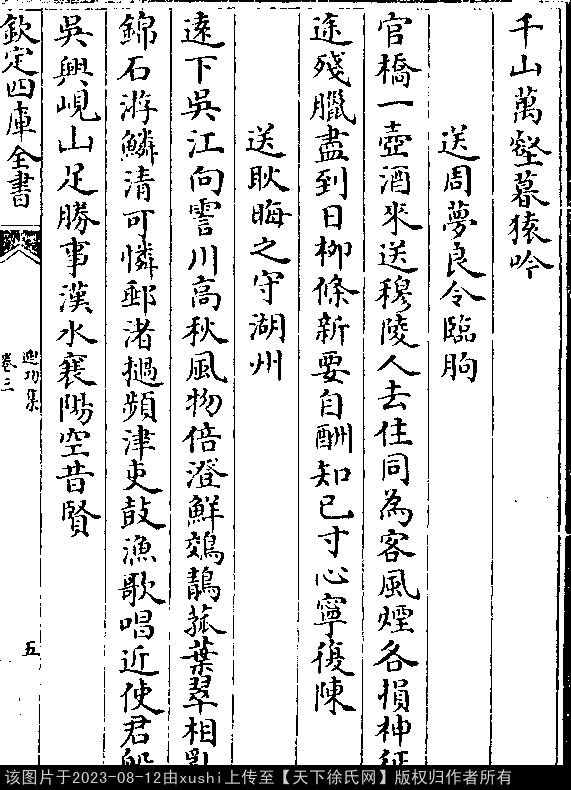 千山萬壑暮猿吟
送周夢良令臨朐
官橋一壺酒來送穆陵人去住同為客風煙各損神征
途殘臘盡到日柳條新要自酬知已寸心寧復陳
送耿晦之守湖州
遠下吳江向霅川高秋風物倍澄鮮鵁鶄菰葉翠相亂
錦石游鱗清可憐郵渚檛頻津吏鼓漁歌唱近使君船
吳興峴山足勝事漢水襄陽空昔賢
欽定四庫全書
迪功集
卷三
五
该图片于2023-08-12由xushi上传至【天下徐氏网】版权归作者所有